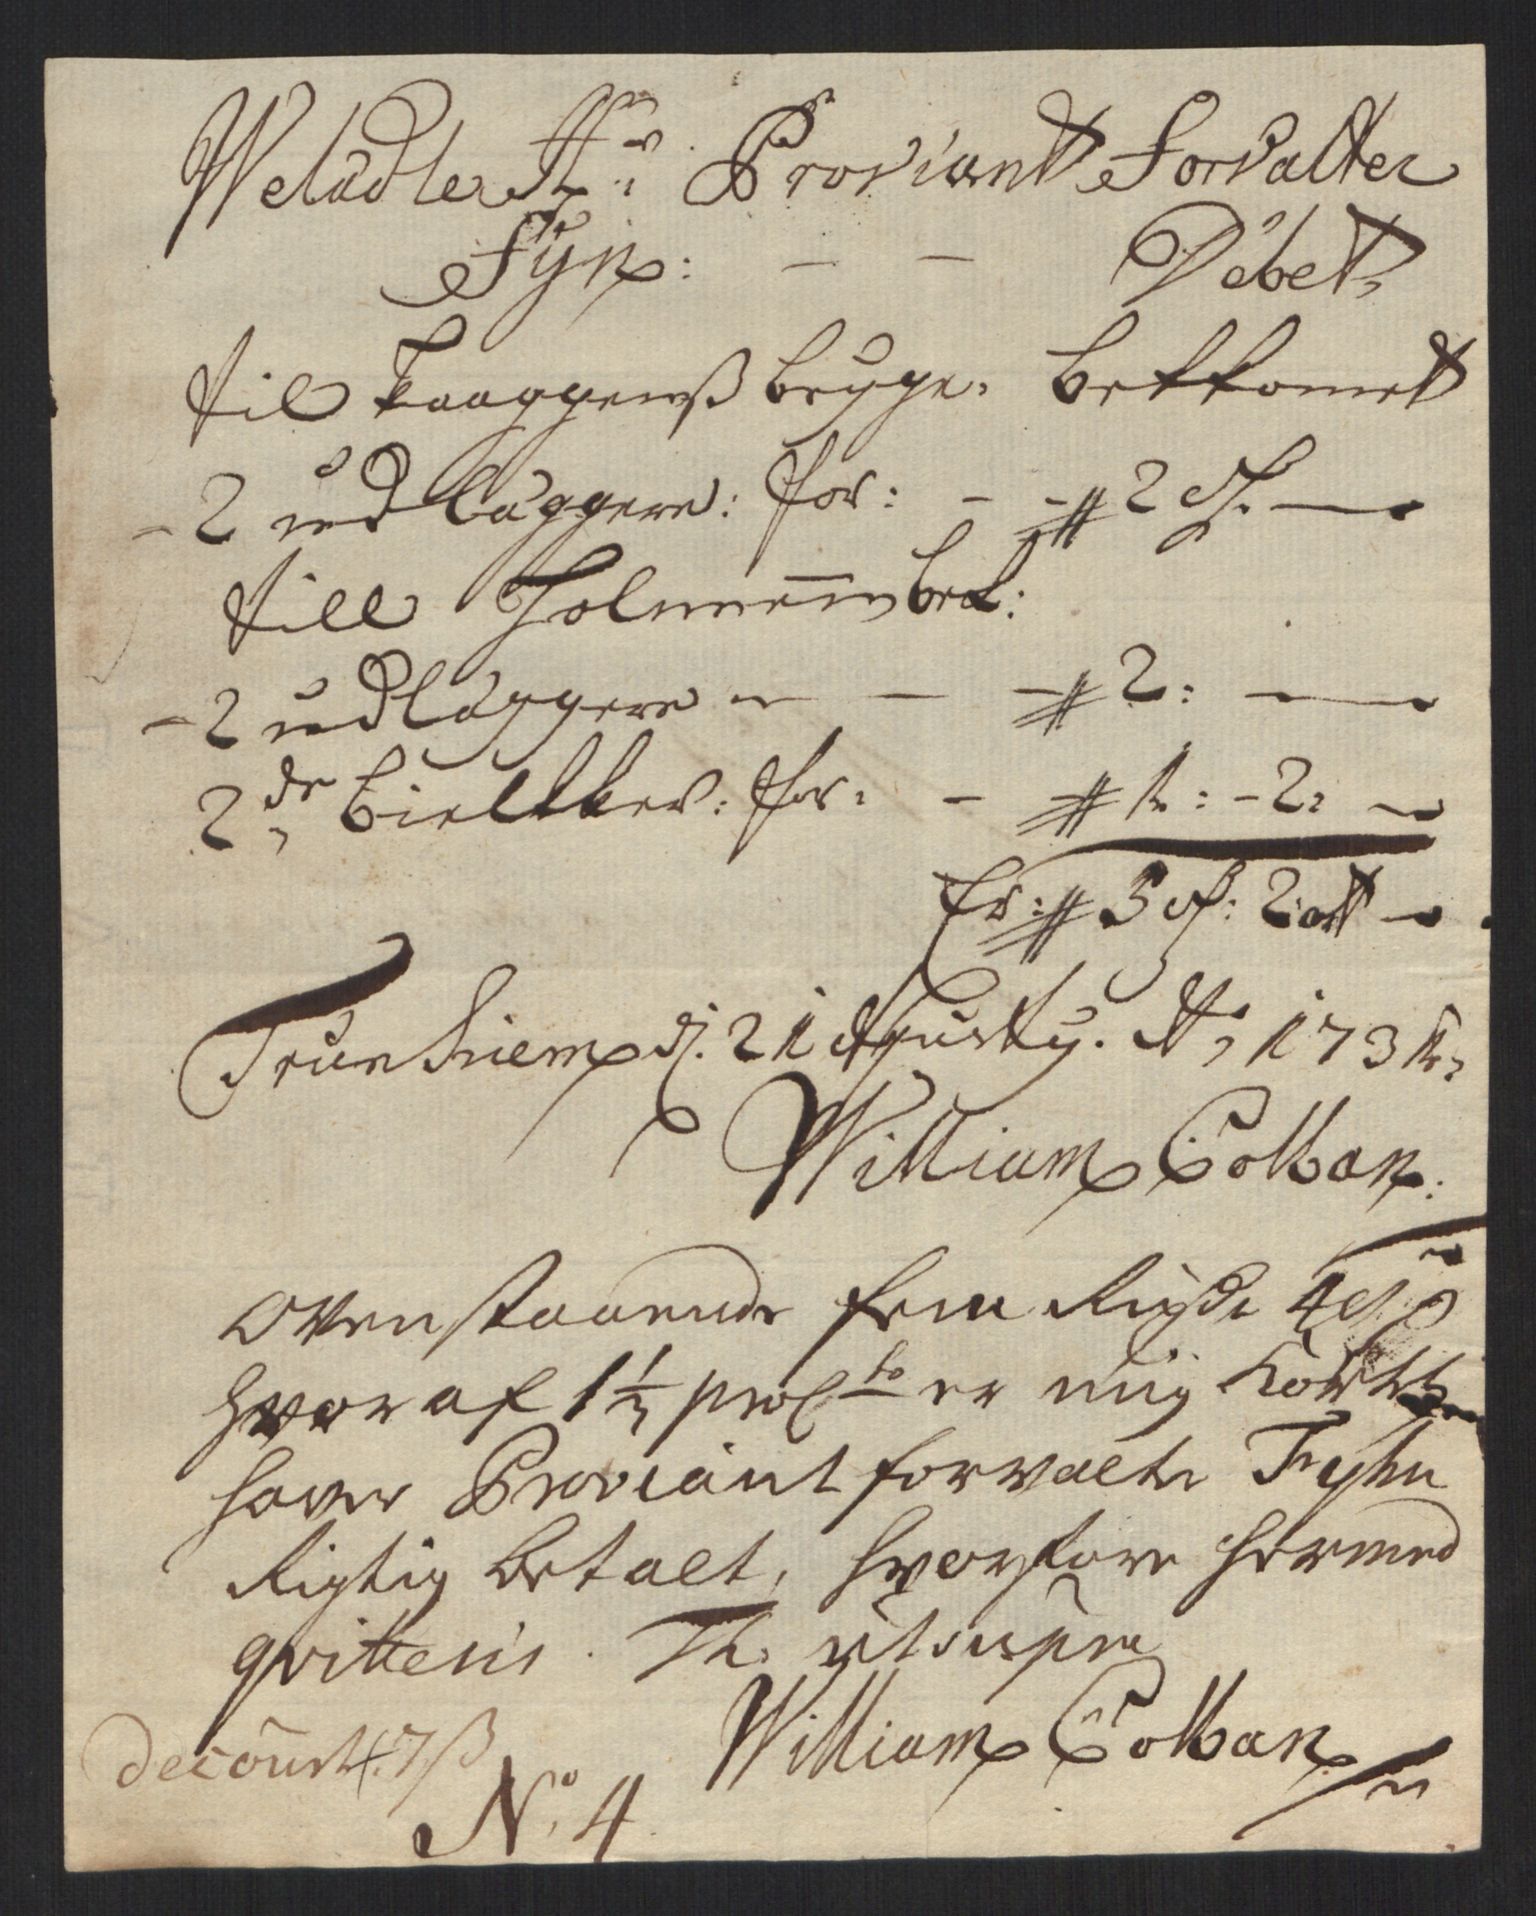 Welædle Hr: Proviant Forvalter
Fyn: — — Debet,
til Kaaggenß bryge. bekkomet
- 2 udlaggere: for: - - # 2 rf. —
till Holmenn bek:
- 2 udlaggere — — # 2: —
2de bielkker: for: - # 1: - 2: —
Er: # 5 rf: 2 ort —
Trunhiem d. 21 Agusty. Ao, 1731,
William Colban:
Ovenstaaende fem Rigsdr
hvoraf 1½ proCto er mig kortt
haver Proviant forvalter Fyhn
Rigtig betalt, hvorfore hermed
qvitteris. Th. ut supra
William Colban
decourt. 7 β
No. 4